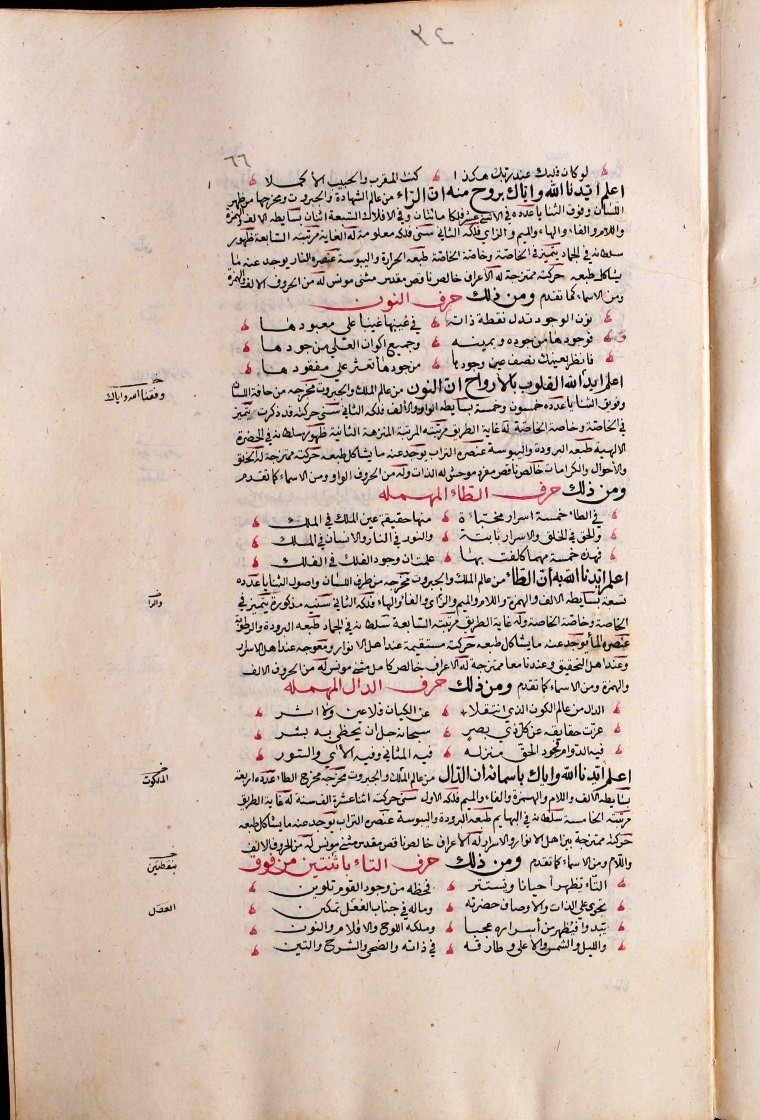 ٣٤
٦٦
لو كان قلبك عند ربك هكذا كنت المقرب والحبيب الأكملا
اعلم ايدنا الله واياك بروح منه ان الراء من عالم الشهادة والجبروت ومخرجها من ظهر
اللسان وفوق الثنايا عدده في الاثني عشر فلكا مائتان وفي الافلاك السبعة اثنان بسايطه الالف والهمزة
واللام والفاء والهاء والميم والزاي فلكه الثاني سنى فلكه معلومة له الغاية مرتبته السابعة ظهور
سلطانه في الجماد يتميز في الخاصة وخاصة الخاصة طبعه الحرارة واليبوسة عنصره النار يوجد عنه ما
يشاكل طبعه حركته ممتزجة له الأعراف خالص ناقص مقدس مثنى مونس له من الحروف الالف والهمزة
ومن الاسماء كما تقدم ومن ذلك حرف النون
نون الوجود تدل نقطة ذاتها في عينها عينا على معبودها
فوجودها من جوده ويمينه وجميع اكوان العلى من جودها
فانظر بعينك نصف عين وجودها من جودها تعثر على مفقودها
اعلم ايد الله القلوب بالأرواح ان النون من عالم الملك والجبروت مخرجه من حافة اللسان
وفويق الثنايا عدده خمسون وخمسة بسايطه الواو والألف فلكه الثاني سنى حركته قد ذكرت يتميز
في الخاصة وخاصة الخاصة له غاية الطريق مرتبته المرتبة المنزهة الثانية ظهور سلطانه في الحضرة
الالهية طبعه البرودة واليبوسة عنصره التراب يوجد عنه ما يشاكل طبعه حركته ممتزجة له الخلق
والأحوال والكرامات خالص ناقص مفرد موحش له الذات وله من الحروف الواو ومن الاسماء كما تقدم
ومن ذلك حرف الطاء المهمله
في الطاء خمسة اسرار مخبأة منها حقيقة عين الملك في الملك
والحق في الخلق والاسرار نابتة والنور في النار والانسان في الملك
فهذه خمسة مهما كلفت بها علمت ان وجود الفلك في الفلك
اعلم ايدنا الله به ان الطاء من عالم الملك والجبروت مخرجه من طرف اللسان واصول الثنايا عدده
تسعة بسايطه الالف والهمزة واللام والميم والزاي والفاء والهاء فلكه الثاني سنيه مذكورة يتميز في
الخاصة وخاصة الخاصة وله غاية الطريق مرتبته السابعة سلطانه في الجماد طبعه البرودة والرطوبة
عنصره الماء يوجد عنه ما يشاكل طبعه حركته مستقيمة عند اهل الانوار ومعوجه عند اهل الاسرار
وعند اهل التحقيق وعندنا معا ممتزجة له الاعراف خالص كامل مثنى مونس له من الحروف الالف
والهمزة ومن الاسماء كما تقدم ومن ذلك حرف الدال المهمله
الدال من عالم الكون الذي انتقلا عن الكيان فلا عين ولا اثر
عزت حقايقه عن كل ذي بصر سبحانه جل ان يحظى به بشر
فيه الدوام فجود الحق منزله فيه المثاني وفيه الآي والسور
اعلم ايدنا الله واياك باسمائه ان الدال من عالم الملك والجبروت مخرجه مخرج الطاء عدده اربعة
بسايطه الالف واللام والهمزة والفاء والميم فلكه الاول سنى حركته اثنا عشرة الف سنة له غاية الطريق
مرتبته الخامسة سلطانه في البهايم طبعه البرودة واليبوسة عنصره التراب يوجد عنه ما يشاكل طبعه
حركته ممتزجة بين اهل الانوار والاسرار له الأعراف خالص ناقص مقدس مثنى مونس له من الحروف الالف
واللام ومن الاسماء كما تقدم ومن ذلك حرف التاء باثنتين من فوق
التاء تظهر احيانا وتستتر فحظه من وجود القوم تلوين
يحوي على الذات والاوصاف حضرته وماله في جناب الفعل تمكين
يبدو فيظهر من أسراره عجبا وملكه اللوح والاقلام والنون
والليل والشمس والاعلى وطارقه في ذاته والضحى والشرح والتين
وفقنا الله واياك
والرا
الملكوت
بنقطتين
الفعل